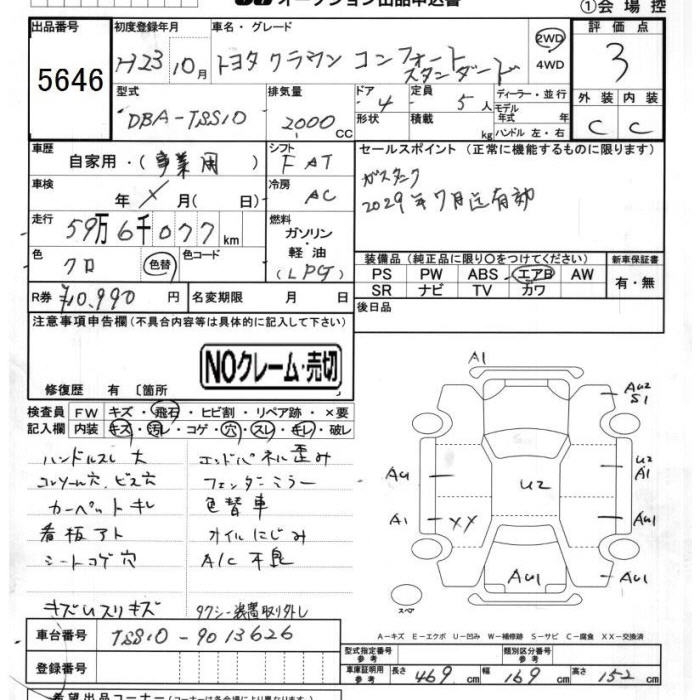 オークション出品申込書
①会場控
出品番号
5646
初度登録年月
H23 10月
車名・グレード
トヨタ クラウン コンフォート
スタンダード
2WD
4WD
評価点
3
外装 内装
C C
型式
DBA-TSS10
排気量
2000 CC
ドア
4
形状
定員
5人
積載
kg
ディーラー・並行
モデル
年式 年
ハンドル 左・右
車歴
自家用・(事業用)
シフト
FAT
セールスポイント(正常に機能するものに限ります)
ガスタンク
2029年7月迄有効
車検
年 X 月(日)
冷房
AC
走行
59万6千077km
燃料
ガソリン
・
軽油
(LPG)
色
クロ
色替
色コード
装備品(純正品に限り○をつけてください)
PS PW ABS エアB AW
SR ナビ TV カワ
新車保証書
有・無
R券 ¥10,990円
名変期限 月 日
後日品
注意事項申告欄(不具合内容等は具体的に記入して下さい)
NOクレーム・売切
修復歴 有 〔箇所
検査員
記入欄
FW キズ・飛石・ヒビ割・リペア跡・×要
内装 キズ・汚レ・コゲ・穴・スレ・キレ・破レ
ハンドルスレ大
コンソール穴、ビス穴
カーペットキレ
看板アト
シートコゲ穴
キズUスリキズ
エンドパネル歪み
フェンダーミラー
色替車
オイルにじみ
A/C不良
タクシー装置取り外し
A1
AU2
S1
U2
A1
AU
U2
A1
XX
AU1
AU1
スペア
A-キズ E-エクボ U-凹み W-補修跡 S-サビ C-腐食 XX-交換済
車台番号
TSS10-9013626
登録番号
型式指定番号
参考
類別区分番号
参考
車庫証明用
参考
長さ 469cm 幅 169cm 高さ 152cm
希望出品コーナー(コーナーは各会場により異なります)